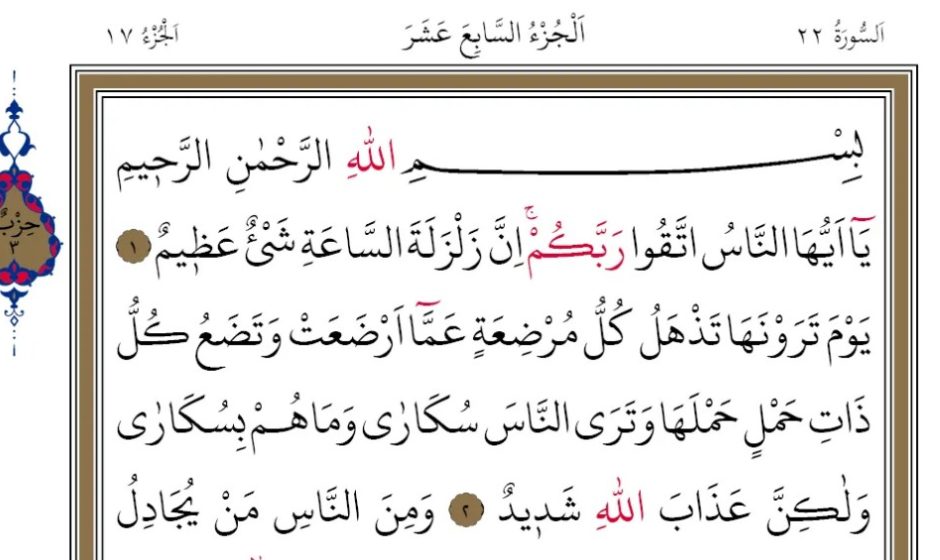 اَلسُّورَةُ ٢٢ اَلْجُزْءُ السَّابِعَ عَشَرَ اَلْجُزْءُ ١٧
بِسْمِ اللّٰهِ الرَّحْمٰنِ الرَّحٖيمِ
يَٓا اَيُّهَا النَّاسُ اتَّقُوا رَبَّكُمْۚ اِنَّ زَلْزَلَةَ السَّاعَةِ شَيْءٌ عَظٖيمٌ ١
يَوْمَ تَرَوْنَهَا تَذْهَلُ كُلُّ مُرْضِعَةٍ عَمَّٓا اَرْضَعَتْ وَتَضَعُ كُلُّ
ذَاتِ حَمْلٍ حَمْلَهَا وَتَرَى النَّاسَ سُكَارٰى وَمَا هُمْ بِسُكَارٰى
وَلٰكِنَّ عَذَابَ اللّٰهِ شَدٖيدٌ ٢ وَمِنَ النَّاسِ مَنْ يُجَادِلُ
حِزْبُ
٣